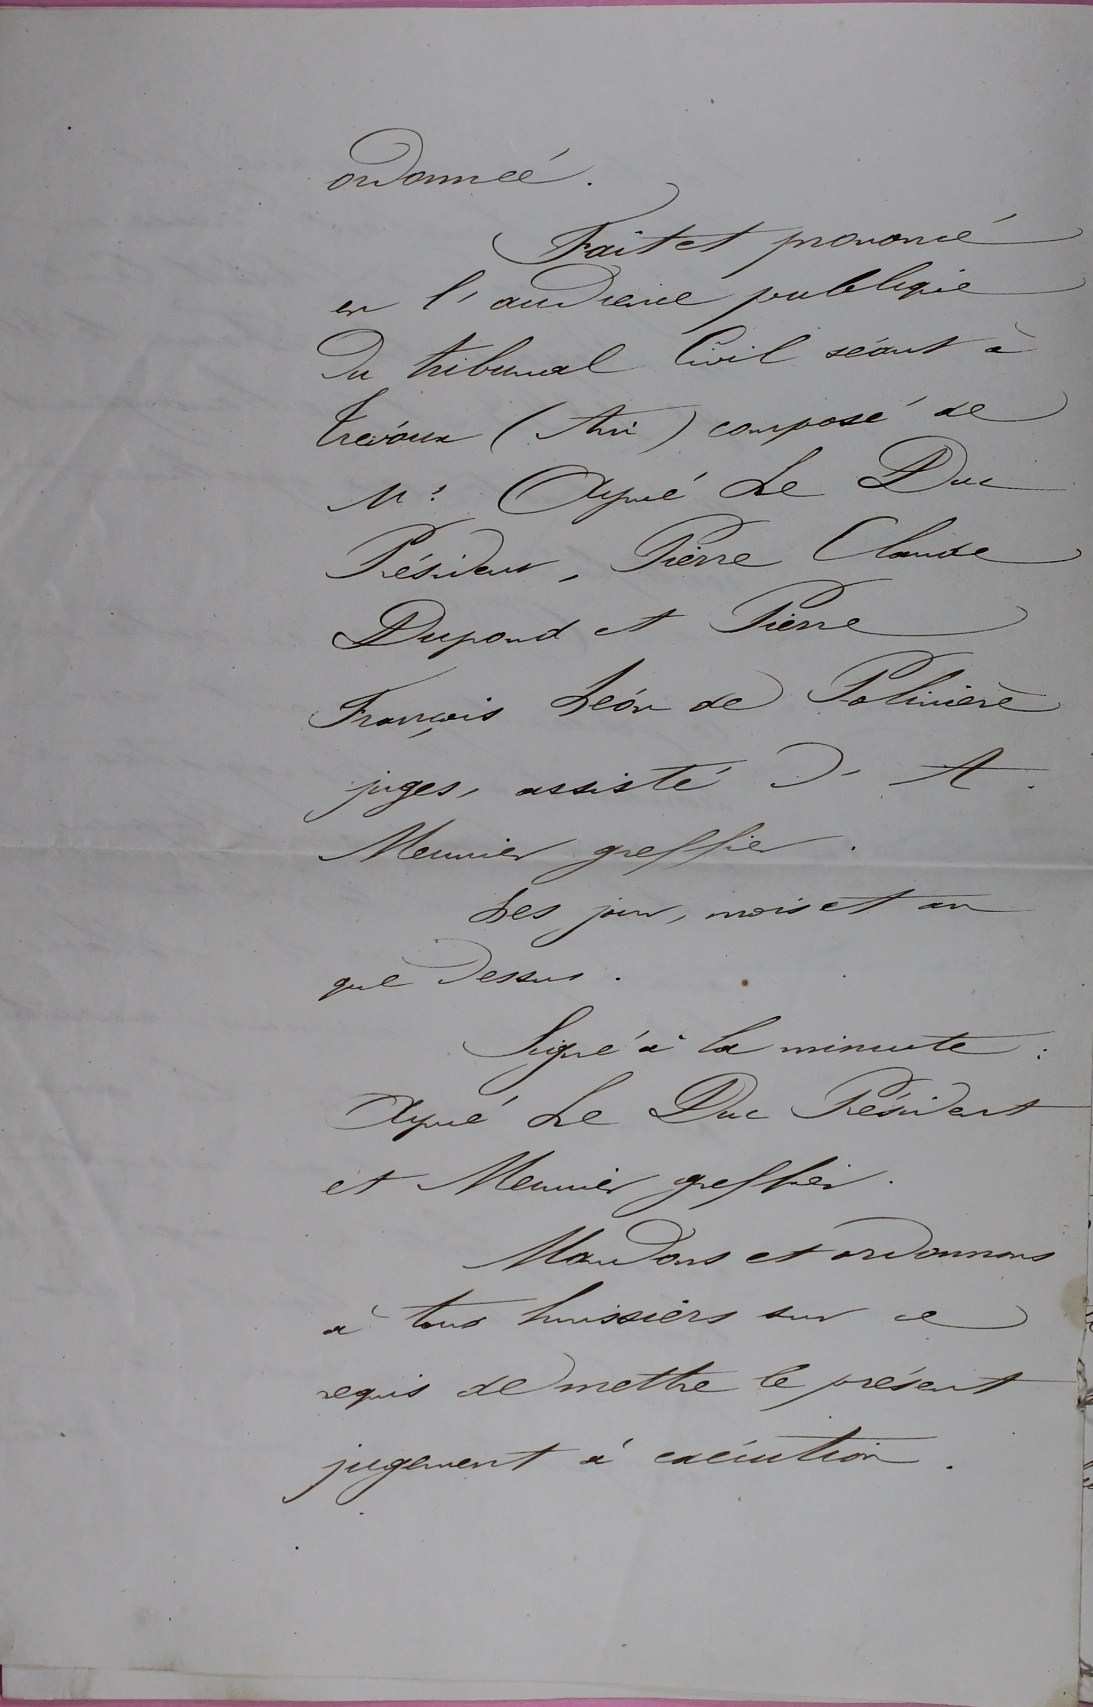 ordonnée.
Fait et prononcé
en l'audience publique
du tribunal Civil séant à
Trévoux (Ain) composé de
Mr. Aymé Le Duc
Président, Pierre Claude
Dupond et Pierre
François Léon de Polinière
juges, assisté d'A.
Meunier greffier.
Les jour, mois et an
que dessus.
Signé à la minute :
Aymé Le Duc Président
et Meunier greffier.
Mandons et ordonnons
à tous huissiers sur ce
requis de mettre le présent
jugement à exécution.